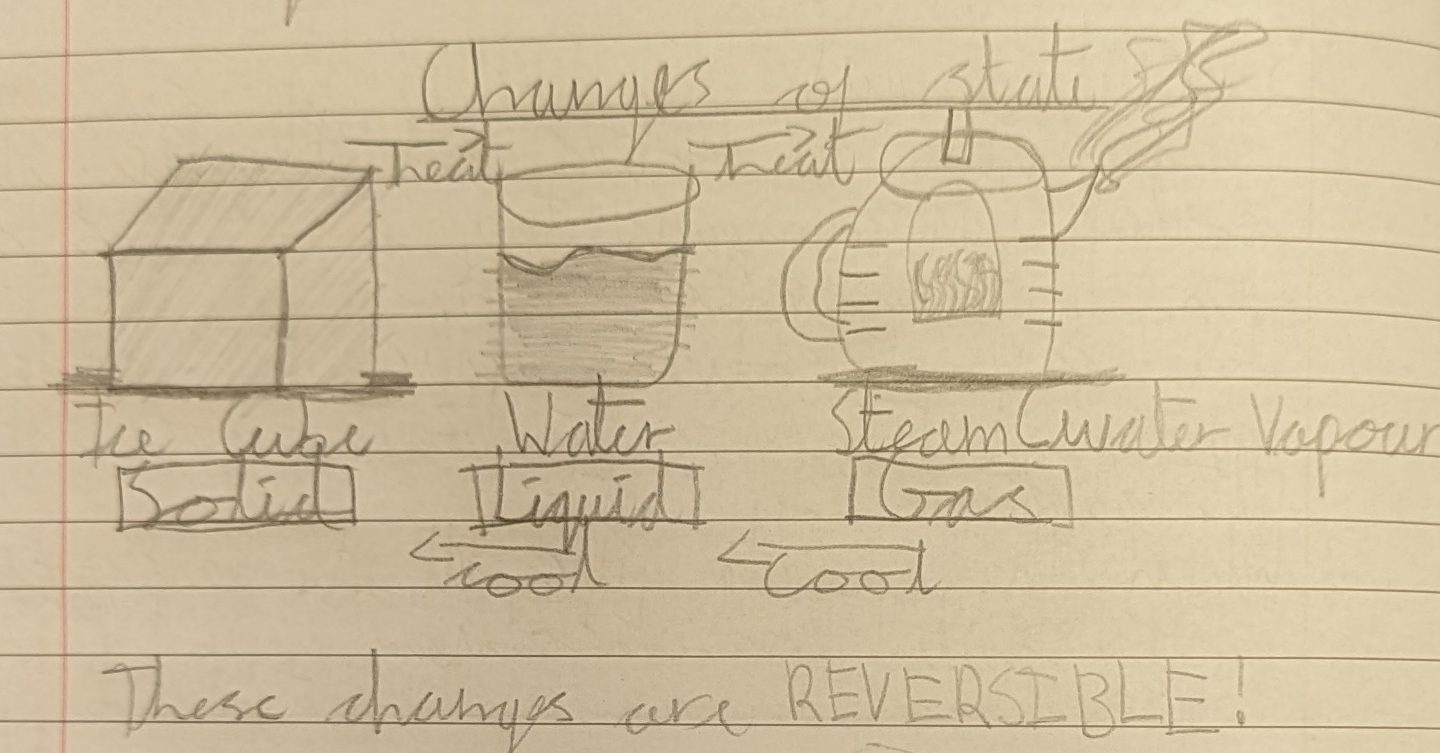 Changes of state
Heat Heat
Ice Cube Water Steam (water Vapour
Solid Liquid Gas
cool cool
These changes are REVERSIBLE!